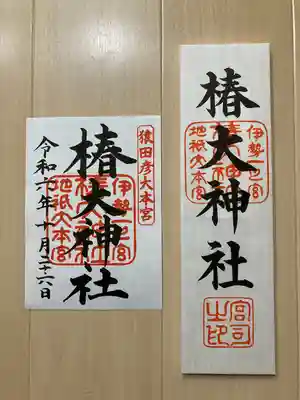 猿田彦大本宮
椿大神社
伊勢一之宮
椿大神社
地祇大本宮
令和六年十月二十六日
椿大神社
伊勢一之宮
椿大神社
地祇大本宮
宮司之印